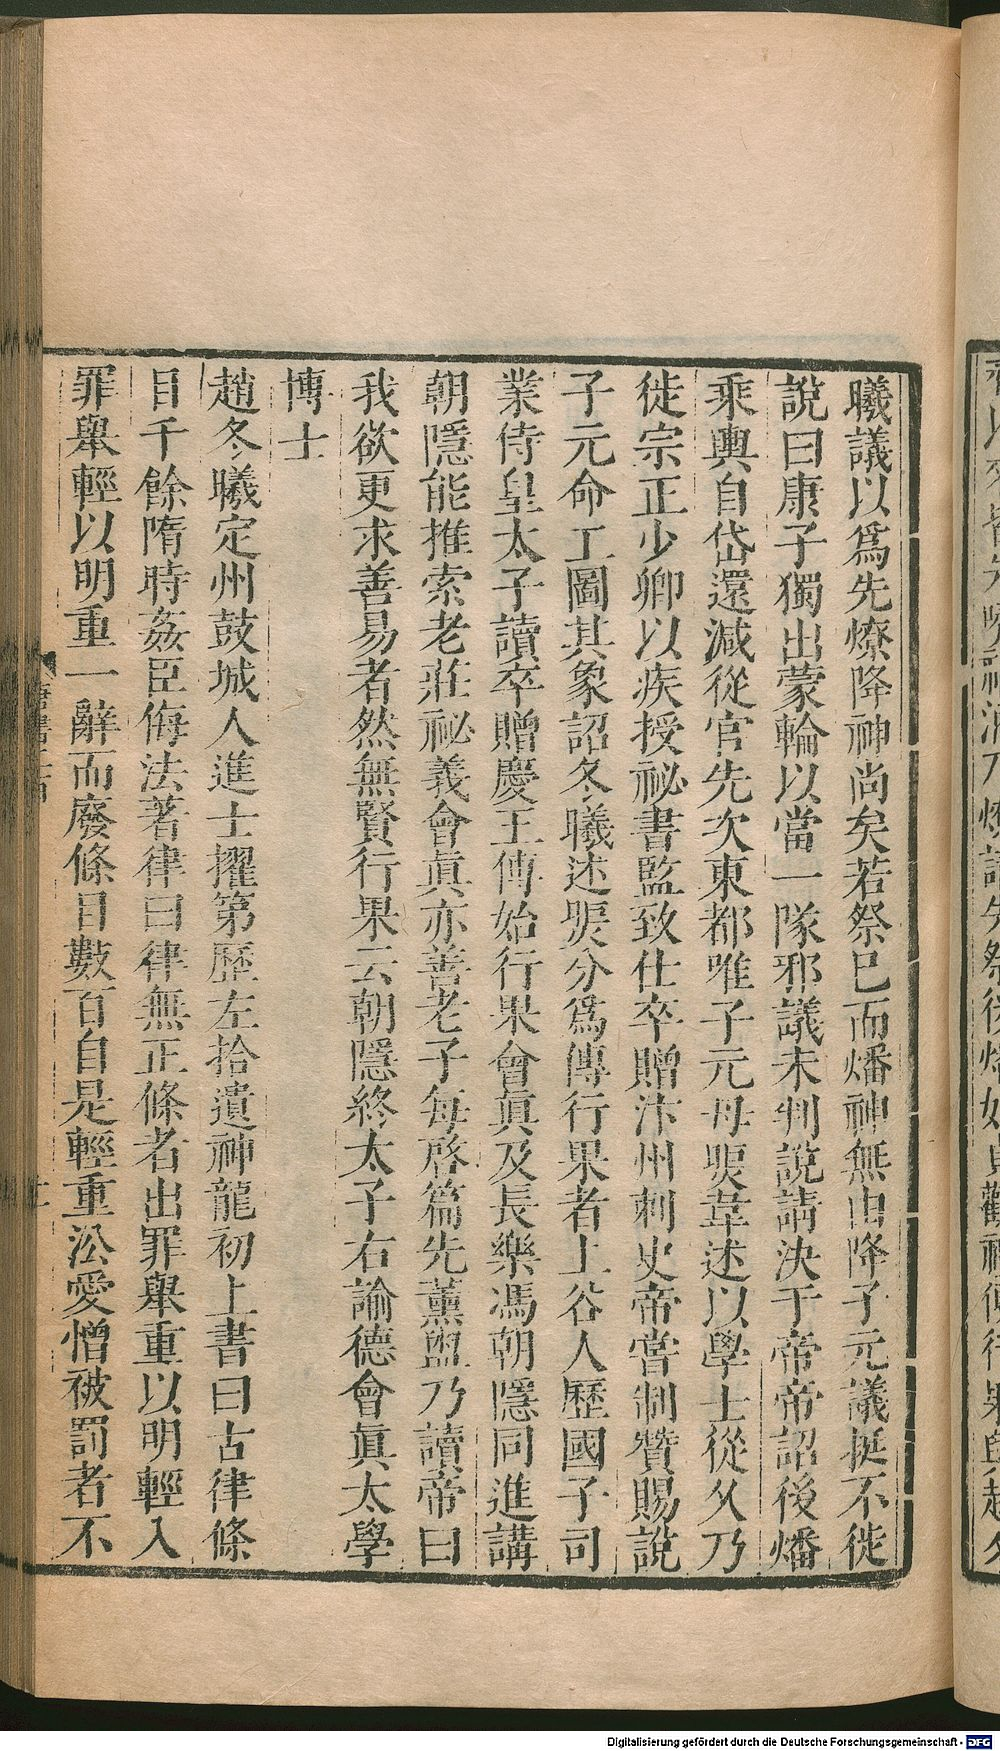 曦議以爲先燎降神尚矣若祭已而燔神無由降子元議挺不徙
說曰康子獨出蒙輪以當一隊邪議未判說請決于帝帝詔後燔
乘輿自岱還減從官先次東都唯子元毋煚韋述以學士從久乃
徙宗正少卿以疾授祕書監致仕卒贈汴州刺史帝嘗制贊賜說
子元命工圖其象詔冬曦述煚分爲傳行果者上谷人歷國子司
業侍皇太子讀卒贈慶王傅始行果會眞及長樂馮朝隱同進講
朝隱能推索老莊祕義會眞亦善老子每啓篇先薰盥乃讀帝曰
我欲更求善易者然無賢行果云朝隱終太子右諭德會眞太學
博士
趙冬曦定州鼓城人進士擢第歷左拾遺神龍初上書曰古律條
目千餘隋時姦臣侮法著律曰律無正條者出罪舉重以明輕入
罪舉輕以明重一辭而廢條目數百自是輕重㳂愛憎被罰者不
Digitalisierung gefördert durch die Deutsche Forschungsgemeinschaft - DFG